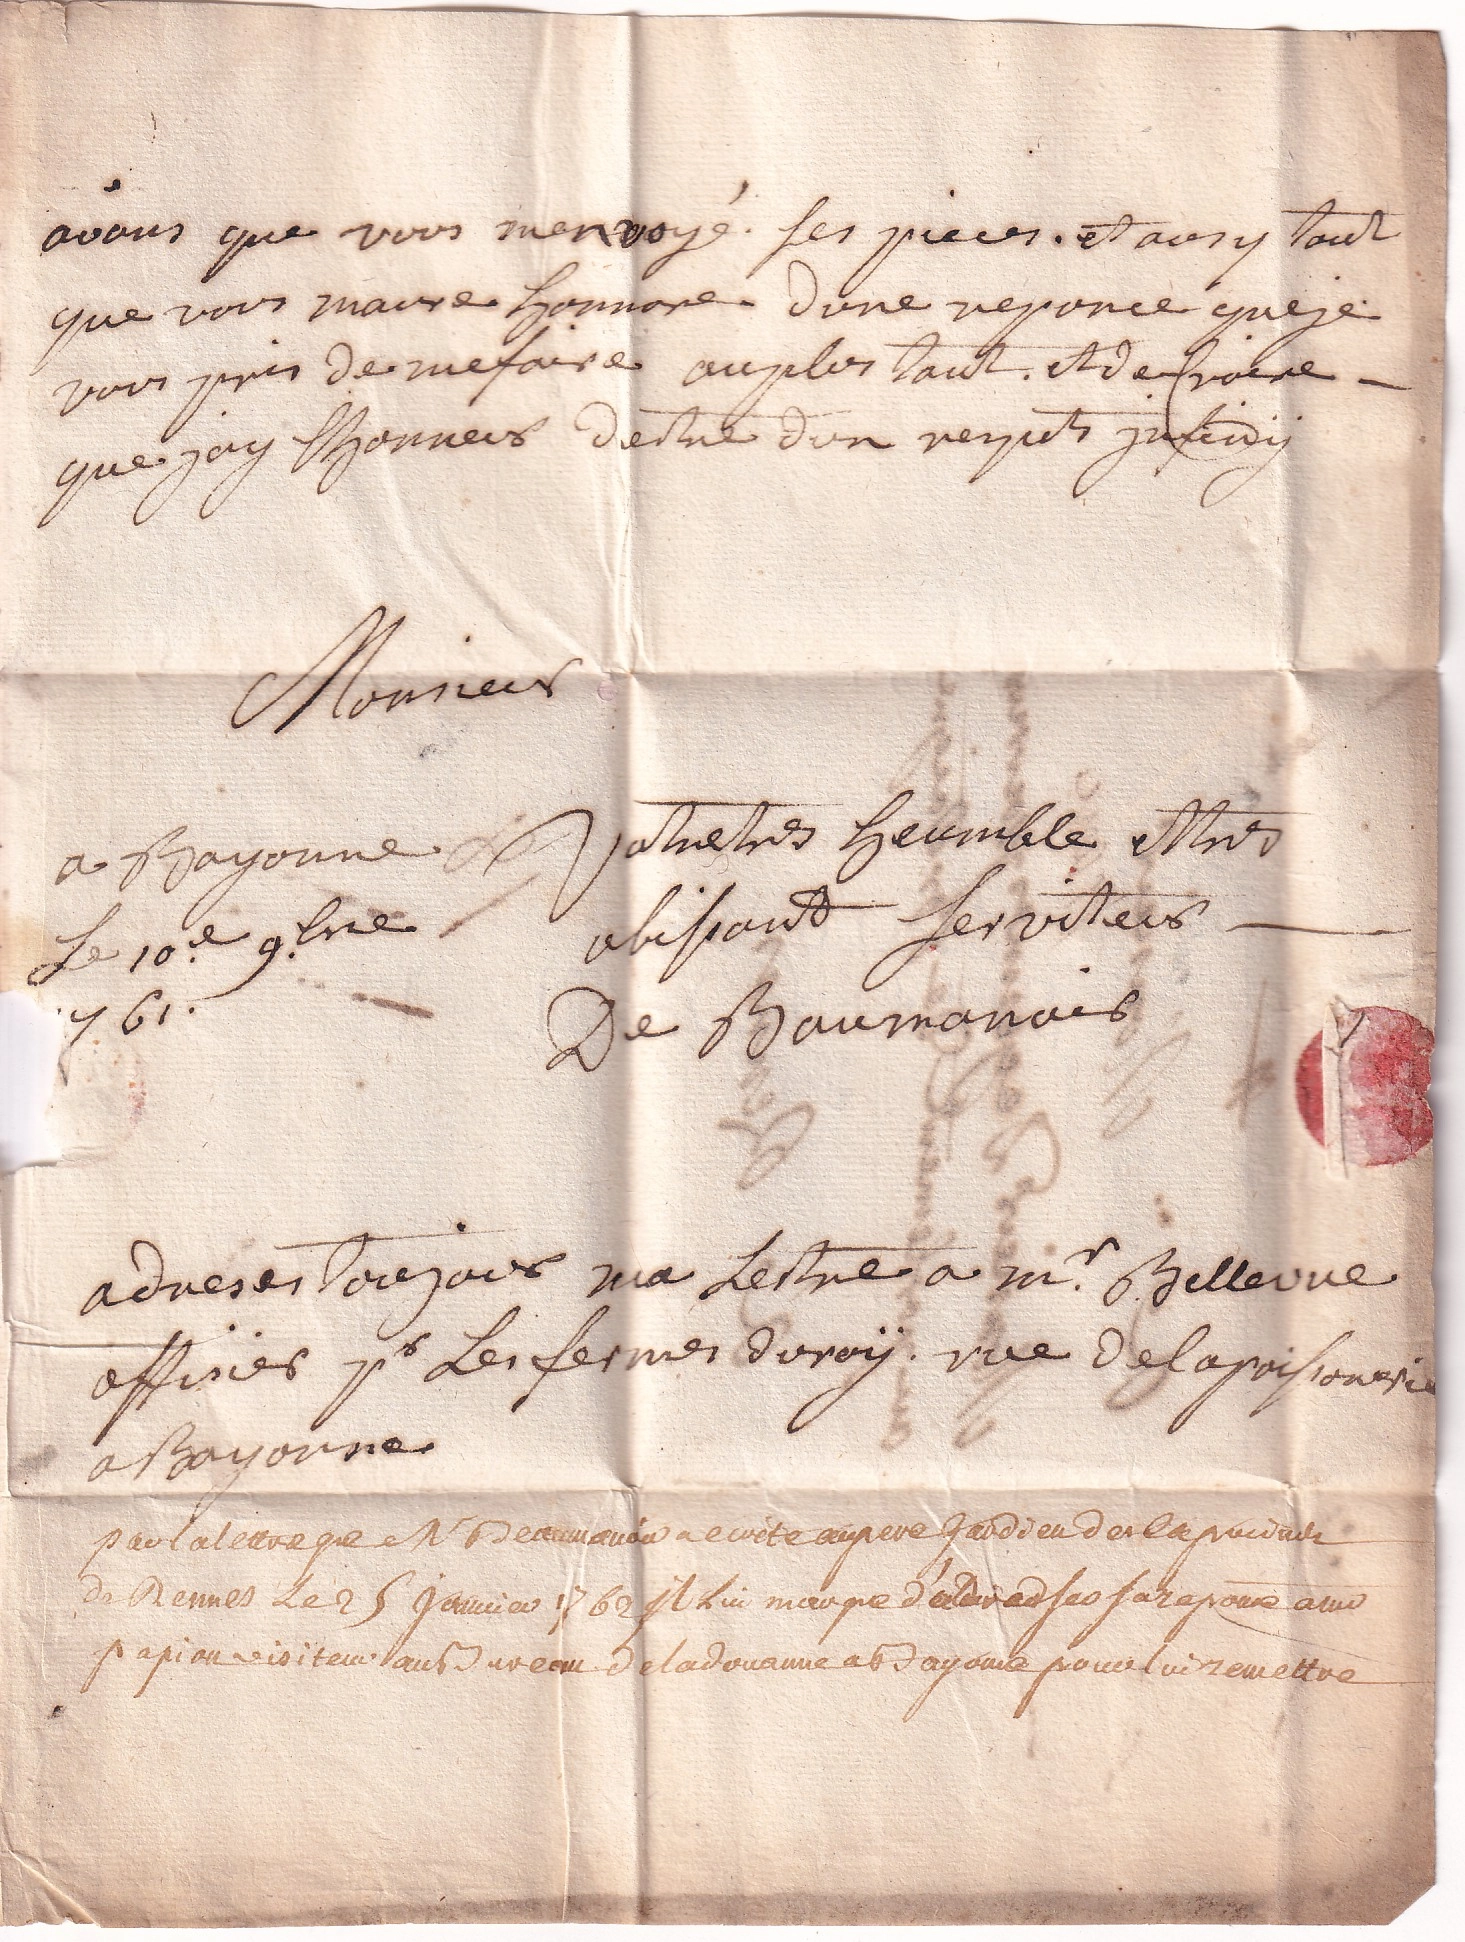 avans que vous menvoyé. ses pieces. et ausy tout
que vous maure honnore dune reponce que je
vous pris de mefaire auplus tout. et de croire —
que jay lhonneur destre dun resputs jnfiny
Monsieur
a Bayonne
Le 10.e 9.bre
1761.
Votre tres heumble et tres
obissant serviteur
De Baumanoir
adreses toujour ma Lestre a mr. Bellevue
offisier pr Les fermes du roÿ. rue de la poissonerie
a Bayonne
par la lettre que Mr Beaumanoir a ecrite au pere gardien des capucins
de Rennes Le 25 janvier 1762 jl lui marque d'adresser sa reponce a mr
papion visiteur au Bureau de la douanne a Bayonne pour lui remettre